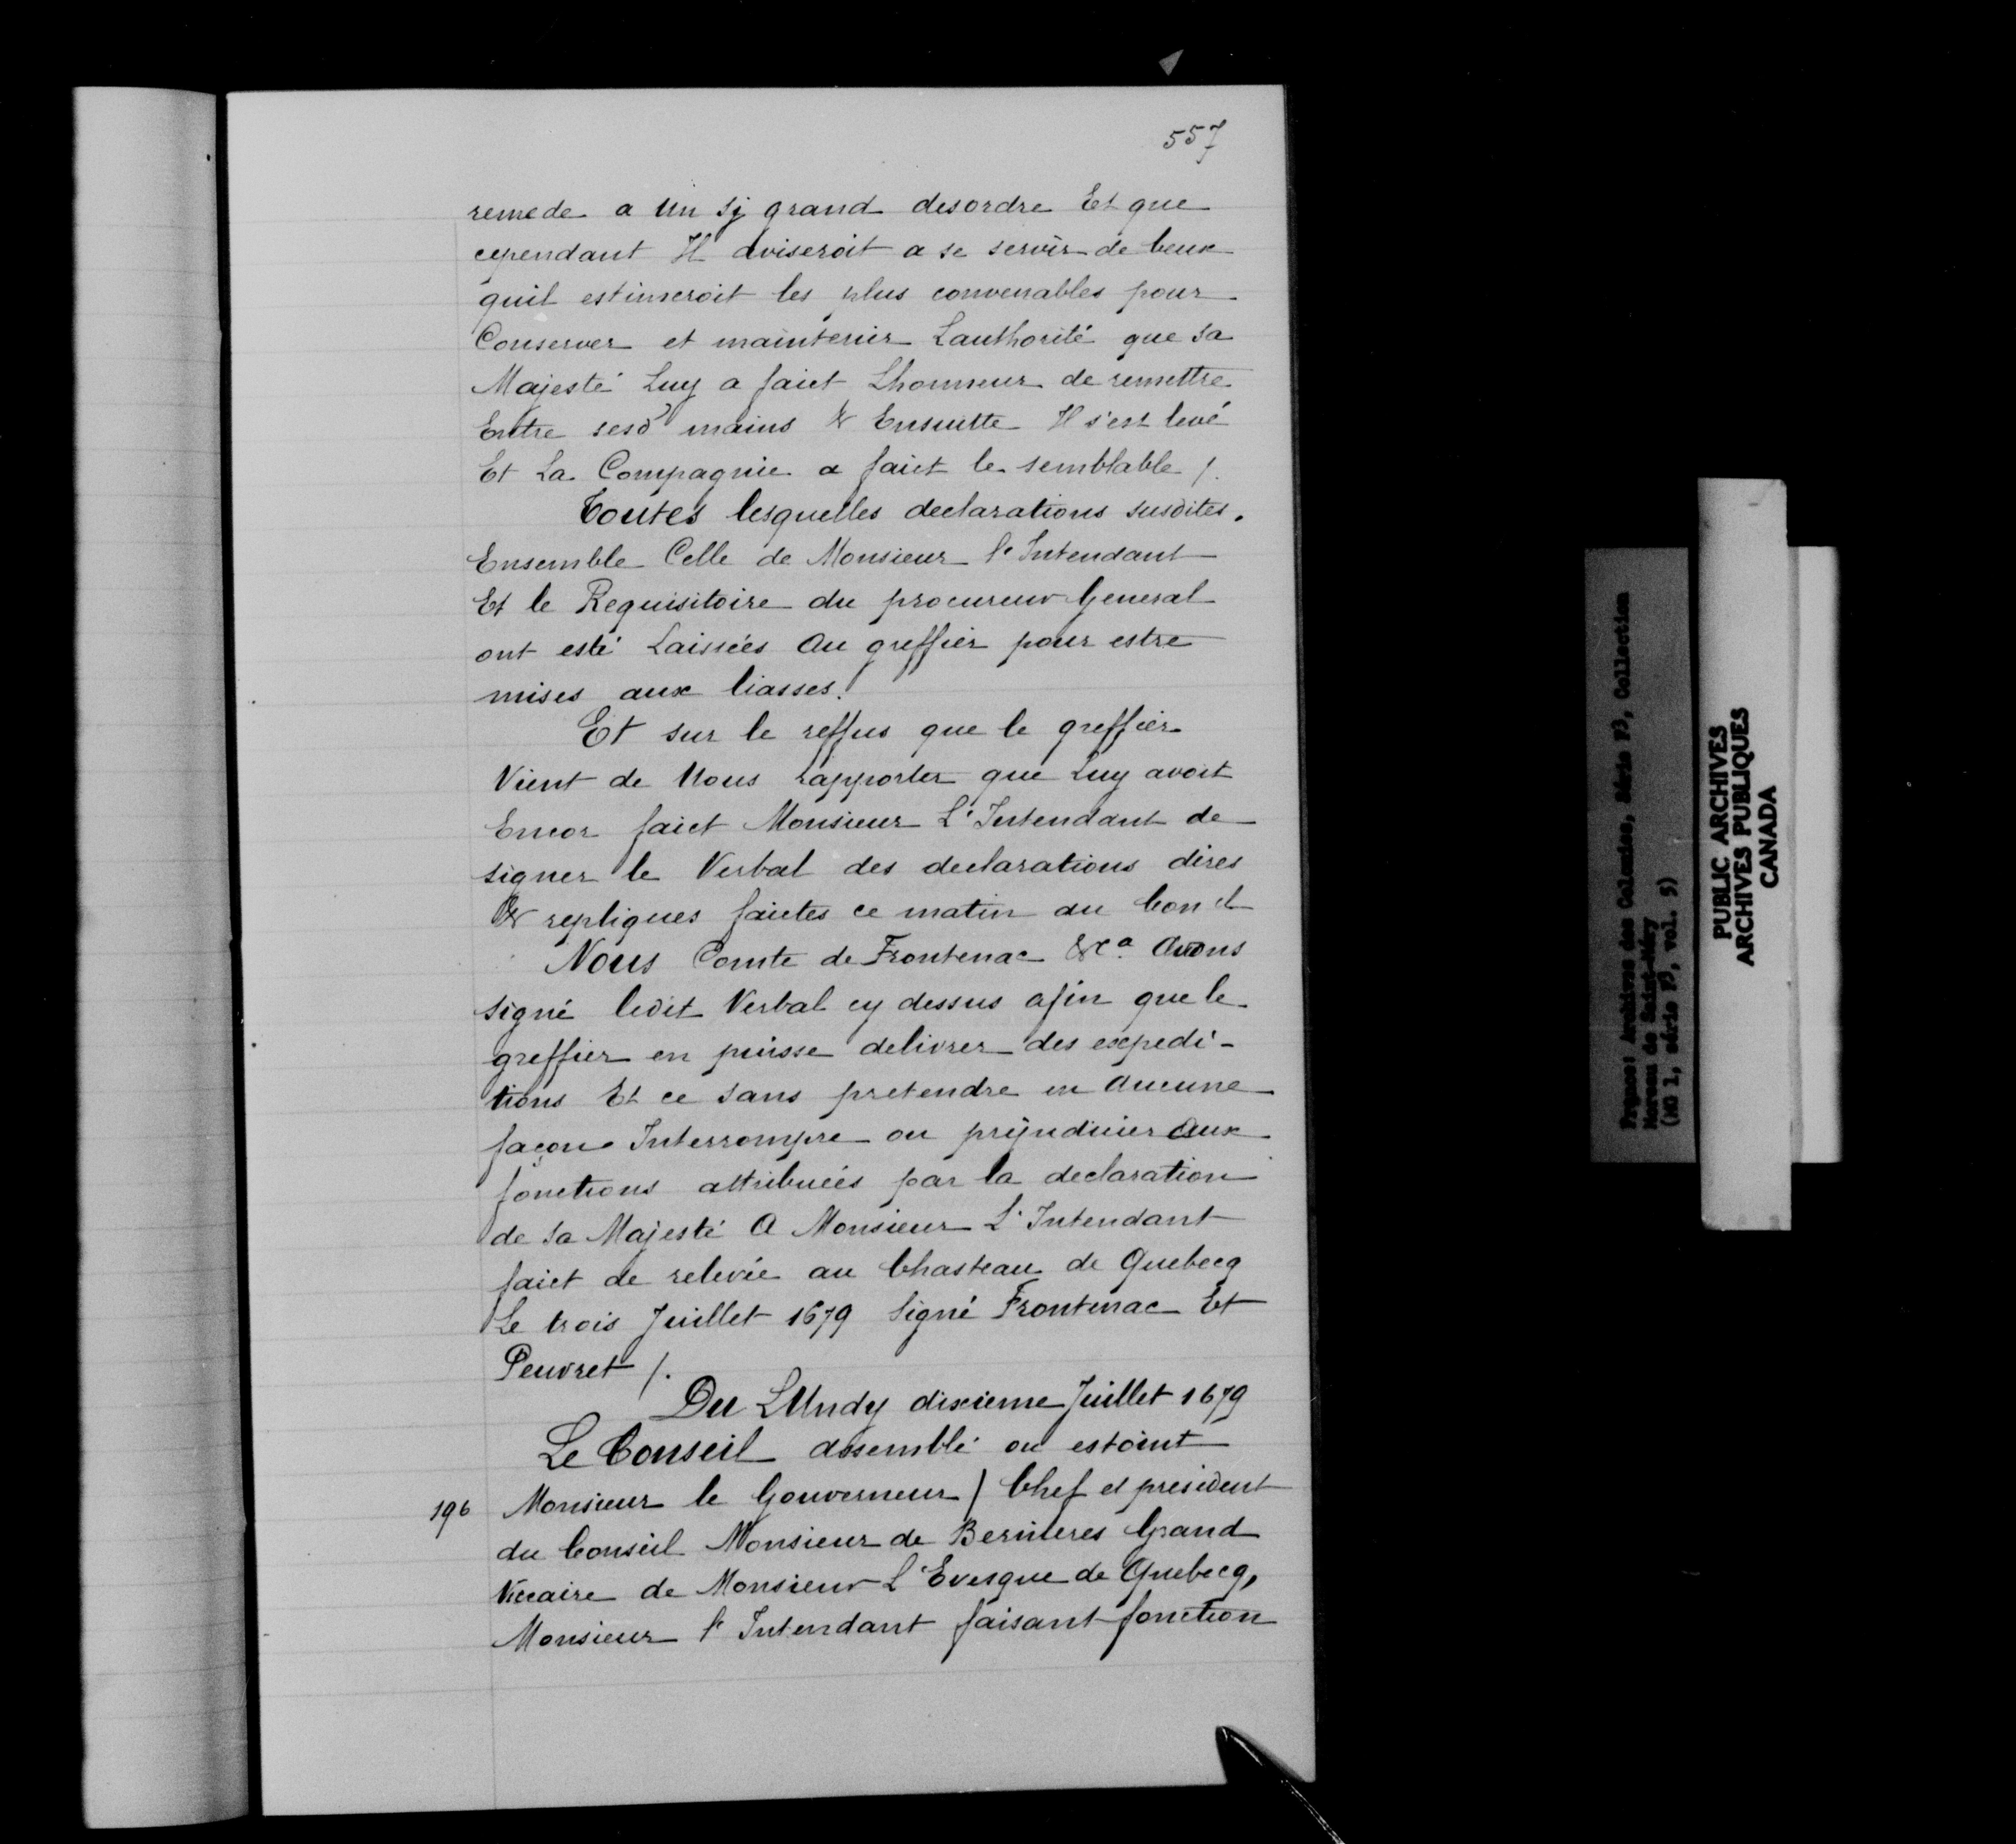 557
remede a Un Sj grand desordre Et que
cependant Il aviseroit a se servir de Ceux
quil estimeroit les plus convenables pour
Conserver et maintenir Lauthorité que Sa
Majesté Luy a faict Lhonneur de remettre
Entre sesd mains & Ensuitte Il s'est levé
Et La Compagnie a faict le semblable /.
Toutes lesquelles declarations susdites.
Ensemble Celle de Monsieur l'Intendant
Et le Requisitoire du procureur General
ont esté Laissées Au greffier pour estre
mises aux liasses.
Et sur le reffus que le greffier
Vient de Nous rapporter que Luy avoit
Encor faict Monsieur L'Intendant de
signer le Verbal des declarations dires
& repliques faictes ce matin au Con el
Nous Comte de Frontenac &ca. Avons
signé ledit Verbal cy dessus afin que le
greffier en puisse delivrer des expedi-
tions Et ce sans pretendre en Aucune
façon Interrompre ou prejudicier Aux
fonctions attribuées par la declaration
de Sa Majesté A Monsieur L'Intendant
faict de relevée au Chasteau de Quebecq
Le trois Juillet 1679 Signé Frontenac Et
Peuvret /.
Du LUndy dixieme Juillet 1679
Le Conseil assemblé ou estoint
196 Monsieur le Gouverneur / Chef et president
du Conseil Monsieur de Bernieres Grand
Viccaire de Monsieur L'Evesque de Quebecq,
Monsieur l'Intendant faisant fonction
PUBLIC ARCHIVES
ARCHIVES PUBLIQUES
CANADA
France: Archives des Colonies, Série F3, Collection
Moreau de Saint-Méry
(MG 1, série F3, vol. 5)